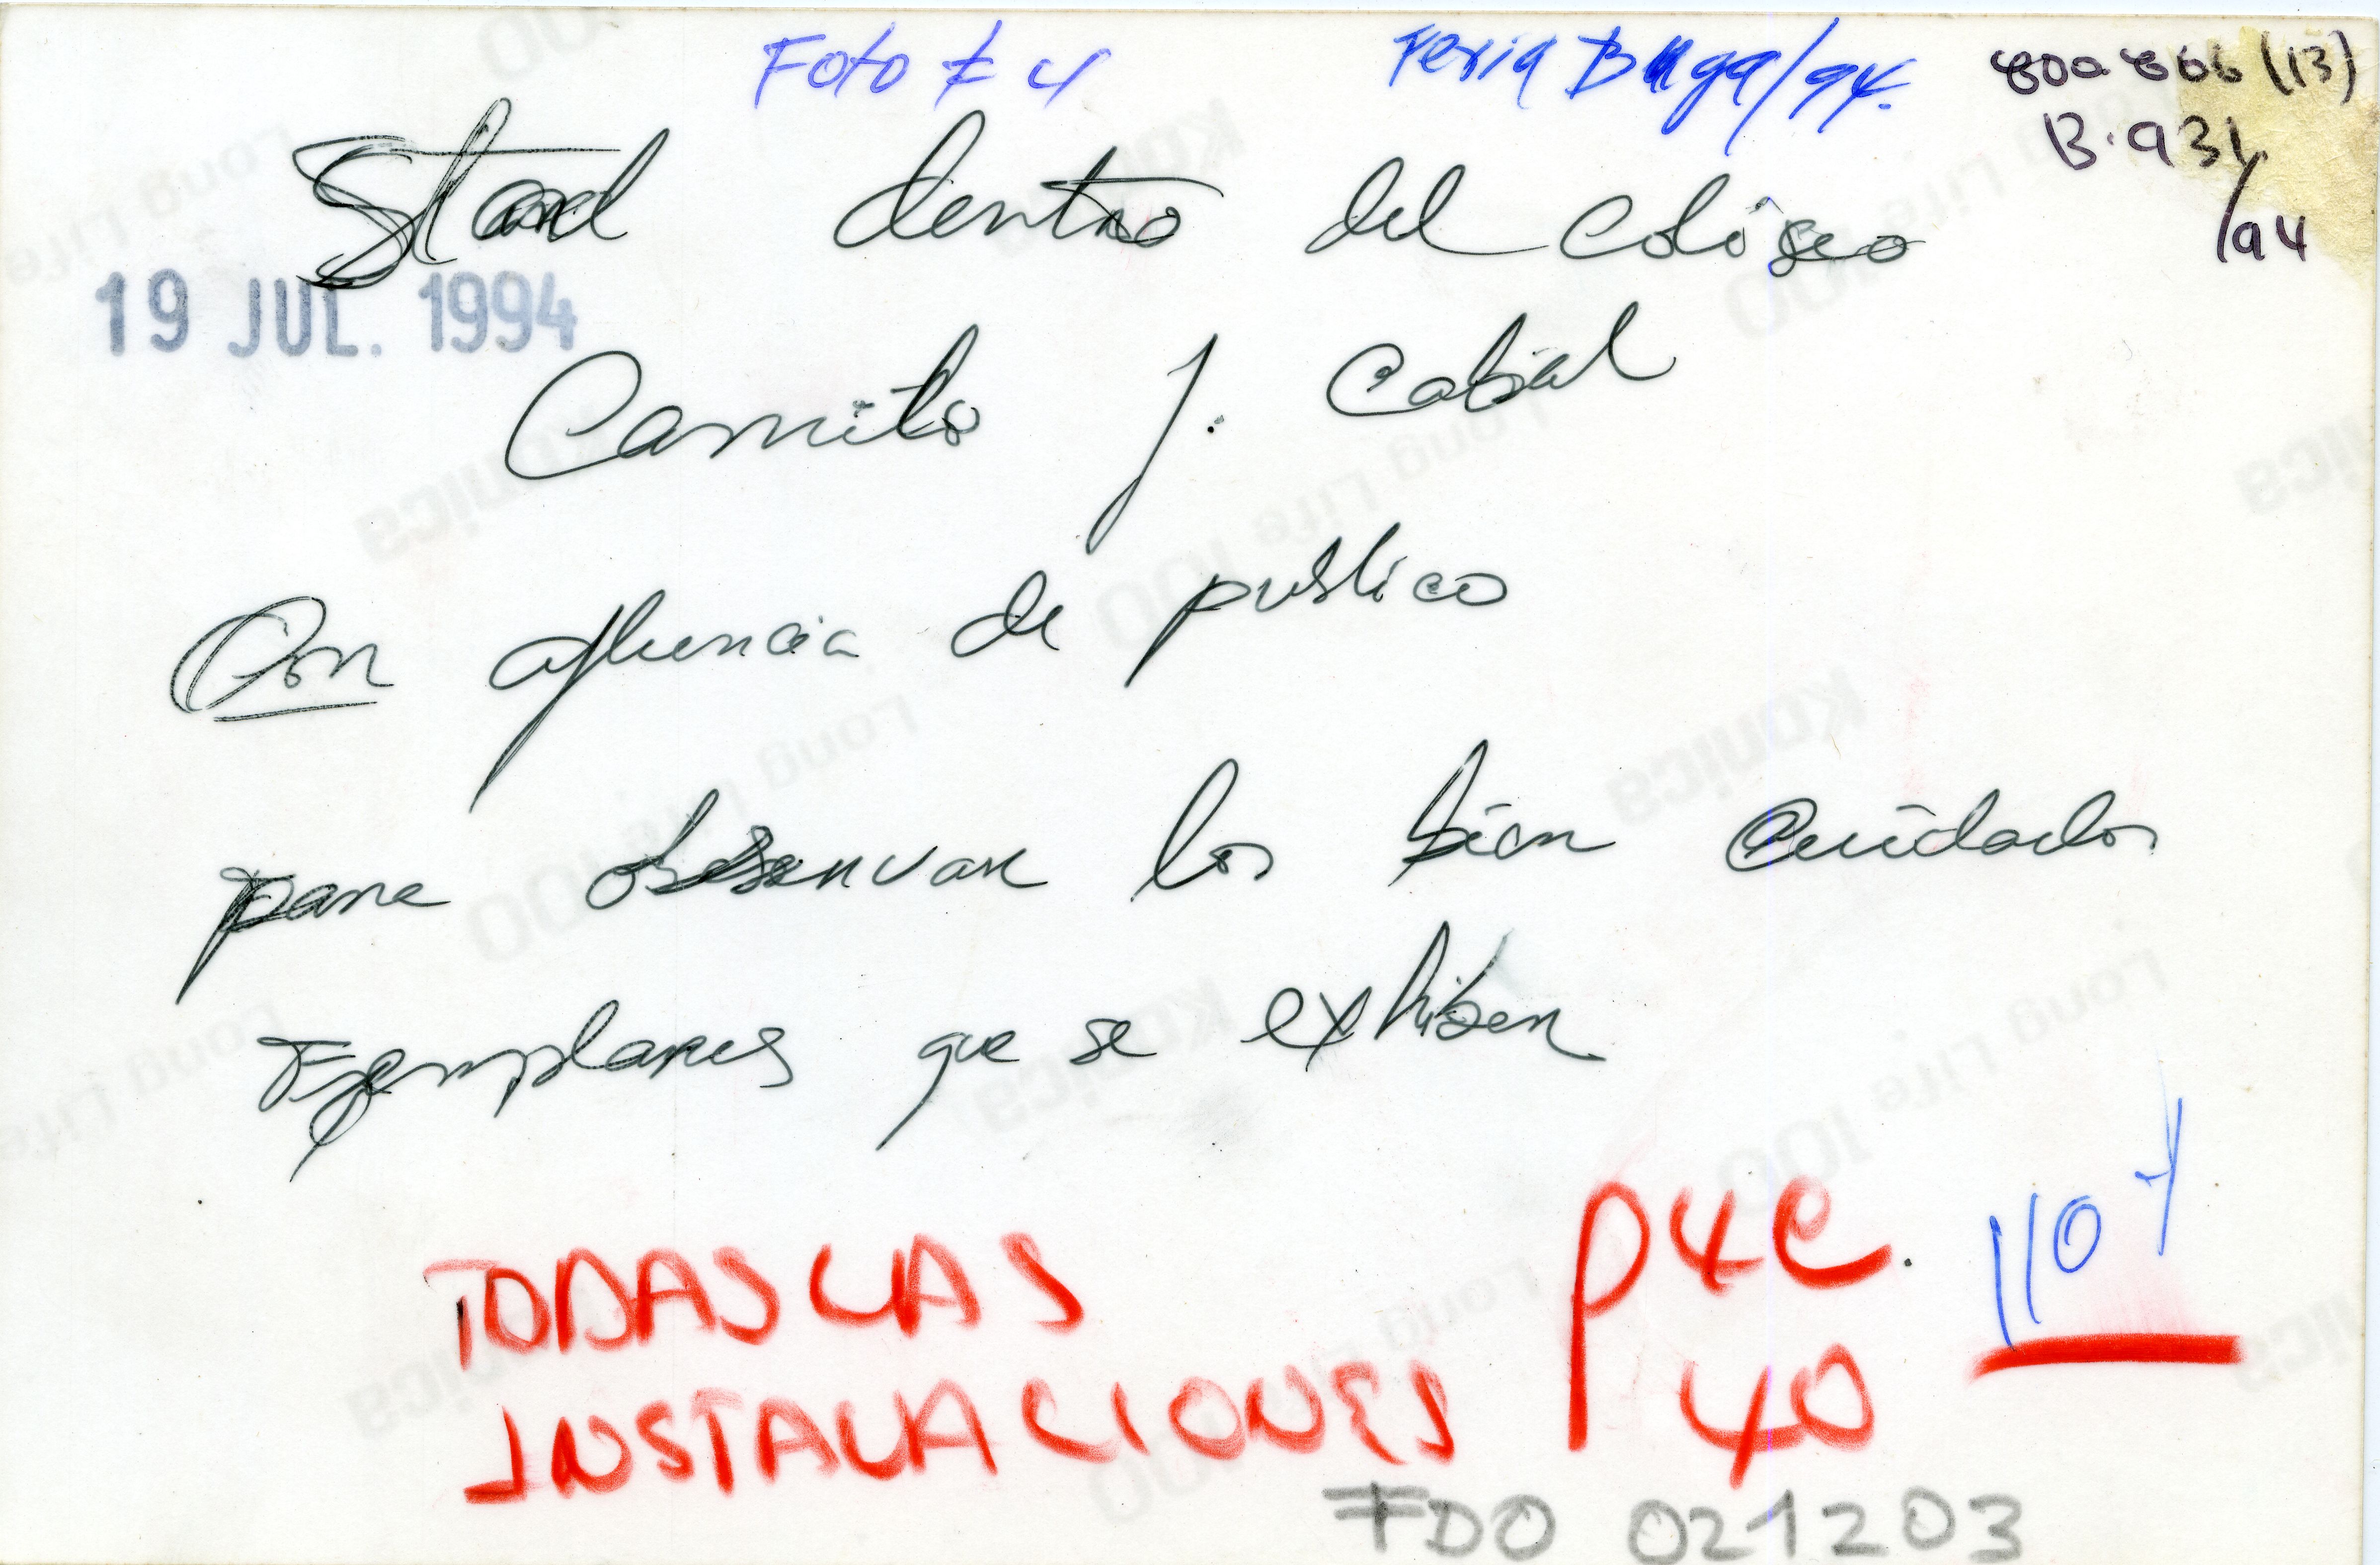 Foto # 4
Feria Buga/94.
800a866 (13)
B.931
/94
Stand dentro del coliseo
19 JUL. 1994
Camilo J. Cabal
Con afluencia de publico
para observar los bien cuidados
Ejemplares que se exhiben
TODAS LAS
INSTALACIONES
P4C.
40
110
FDO 021203
Konica
Long Life 100